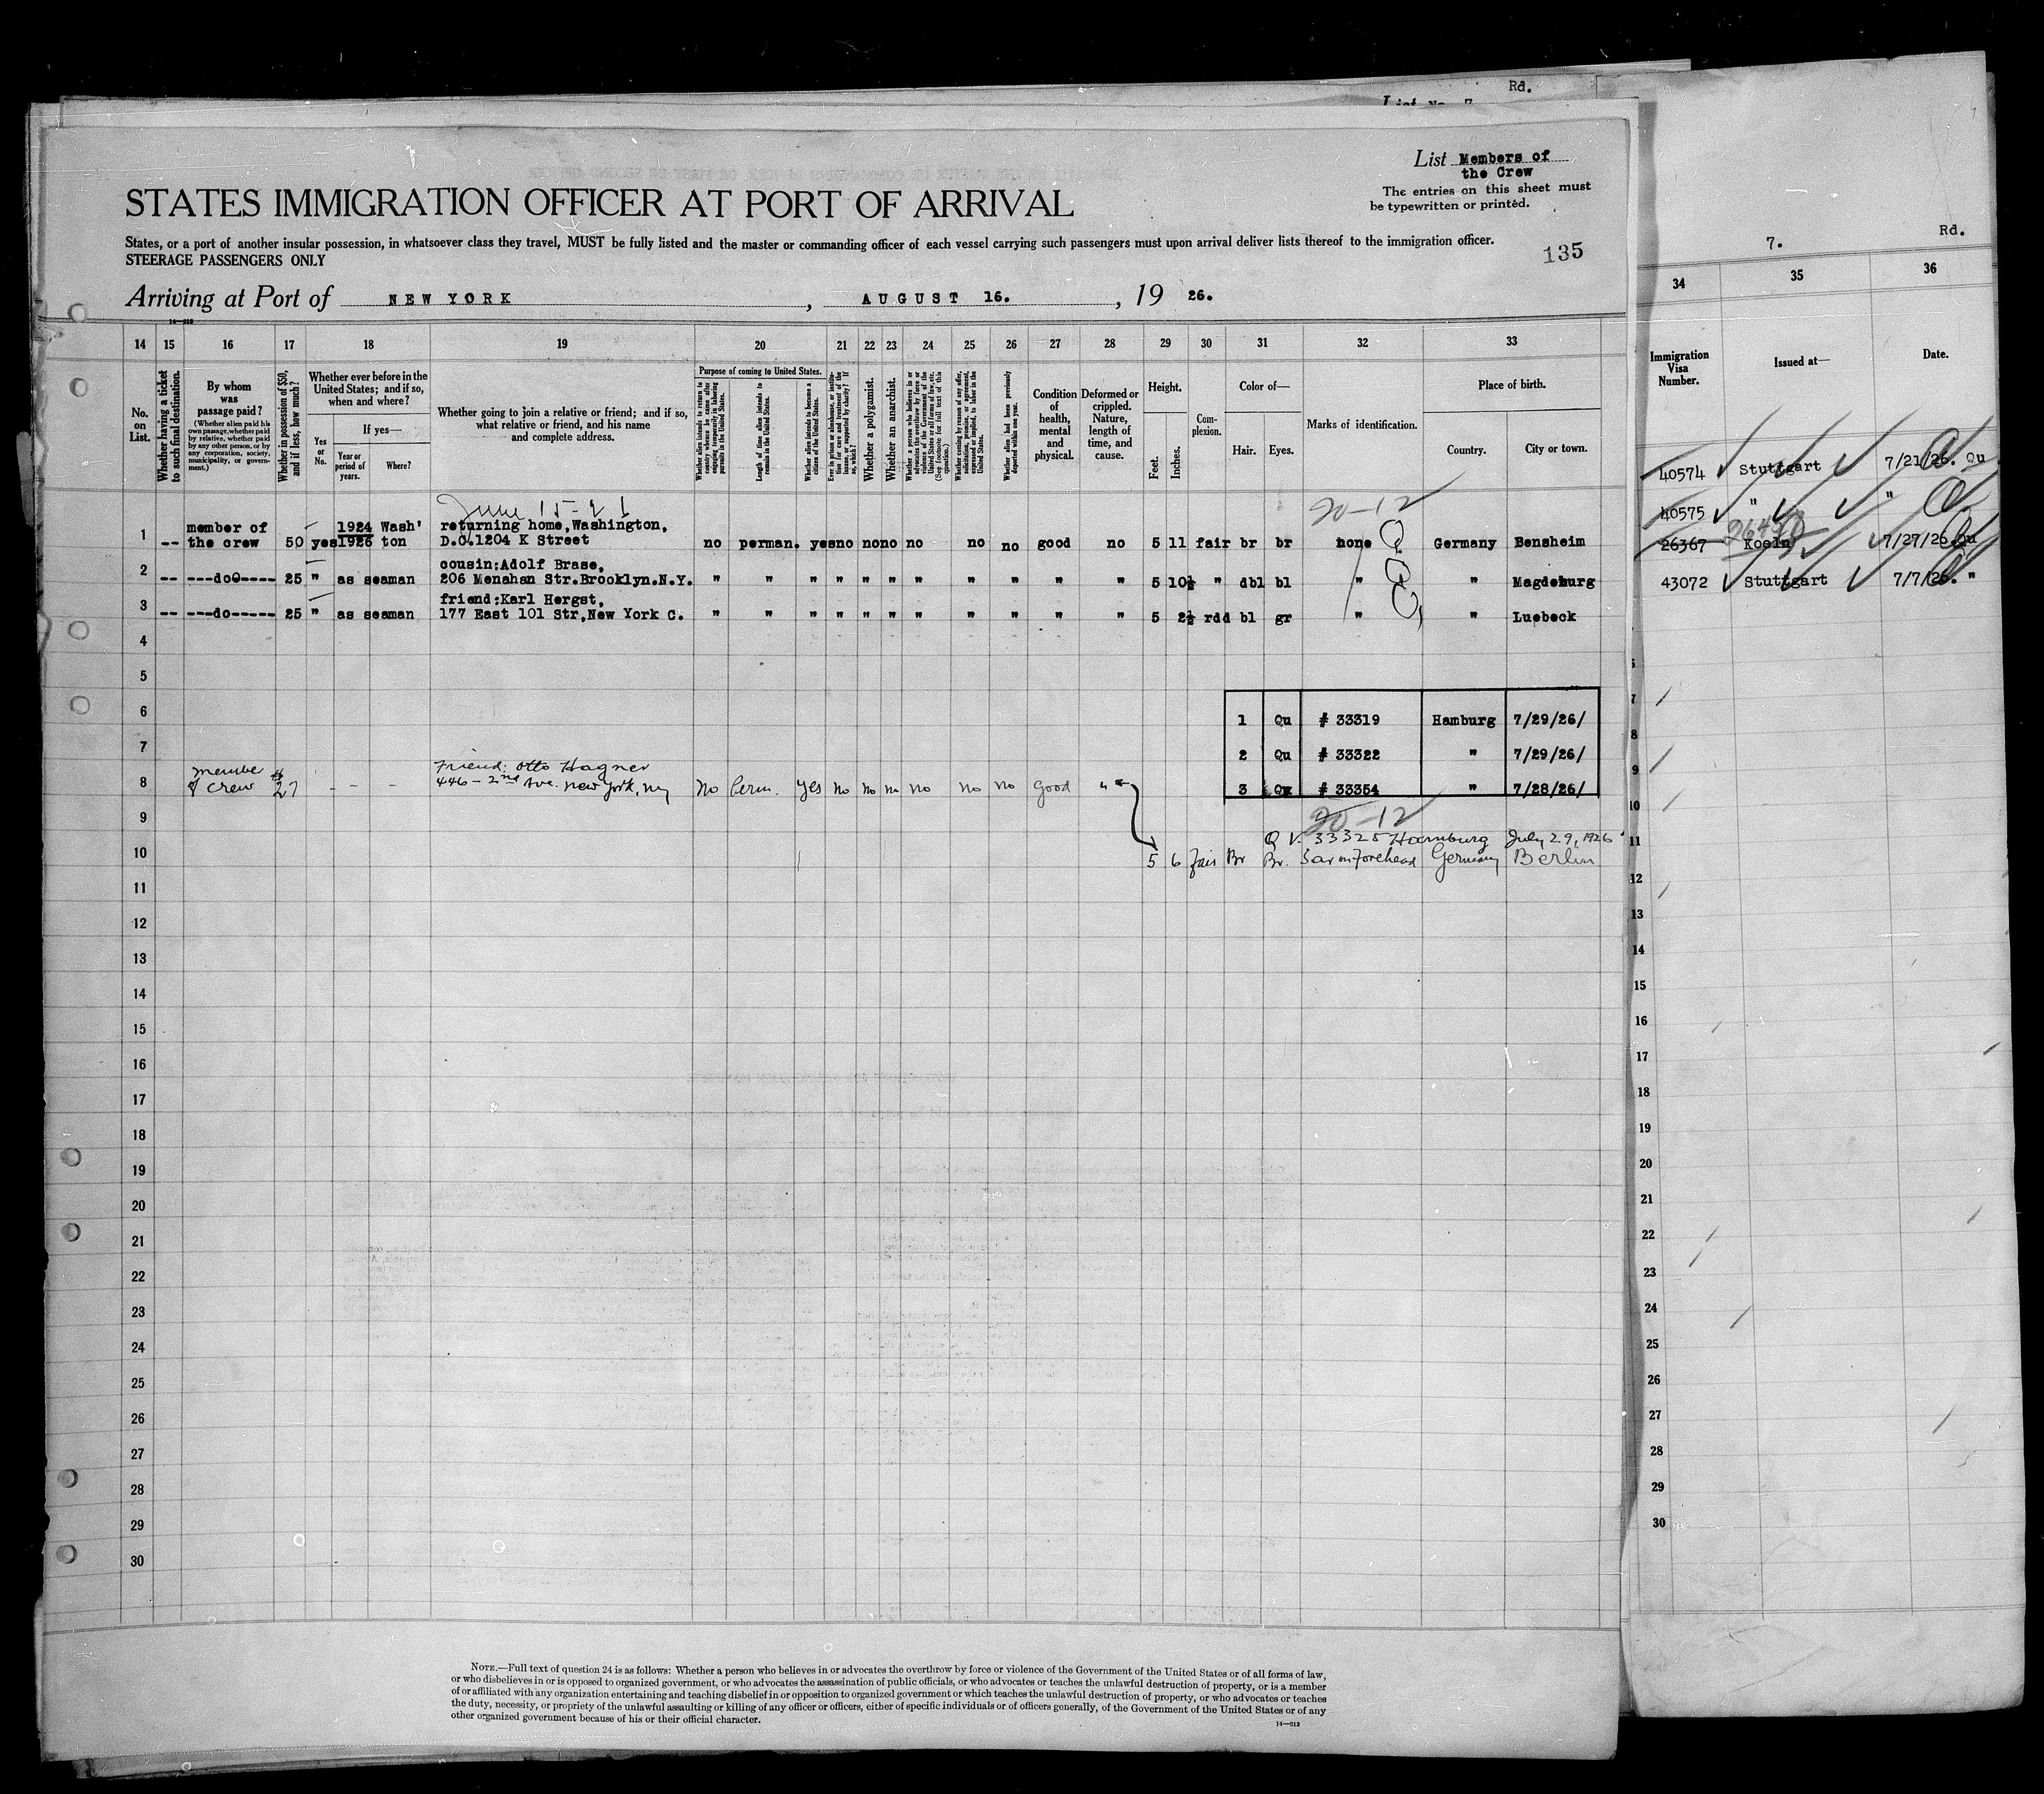 Rd.
List Members of
the Crew
The entries on this sheet must
be typewritten or printed.
STATES IMMIGRATION OFFICER AT PORT OF ARRIVAL
States, or a port of another insular possession, in whatsoever class they travel, MUST be fully listed and the master or commanding officer of each vessel carrying such passengers must upon arrival deliver lists thereof to the immigration officer.
STEERAGE PASSENGERS ONLY
135
Arriving at Port of NEW YORK, AUGUST 16., 19 26.
14 15 16 17 18 19 20 21 22 23 24 25 26 27 28 29 30 31 32 33
No. on List.
Whether having a ticket to such final destination.
By whom was passage paid?
(Whether alien paid his own passage, whether paid by relative, whether paid by any other person, or by any corporation, society, municipality, or government.)
Whether in possession of $50, and if less, how much?
Whether ever before in the United States; and if so, when and where?
Yes or No.
If yes—
Year or period of years.
Where?
Whether going to join a relative or friend; and if so, what relative or friend, and his name and complete address.
Purpose of coming to United States.
Whether alien intends to return to country whence he came after engaging temporarily in laboring pursuits in the United States.
Length of time alien intends to remain in the United States.
Whether alien intends to become a citizen of the United States.
Ever in prison or almshouse, or institution for care and treatment of the insane, or supported by charity? If so, which?
Whether a polygamist.
Whether an anarchist.
Whether a person who believes in or advocates the overthrow by force or violence of the Government of the United States or all forms of law, etc. (See footnote for full text of this question.)
Whether coming by reason of any offer, solicitation, promise, or agreement, expressed or implied, to labor in the United States.
Whether alien had been previously deported within one year.
Condition of health, mental and physical.
Deformed or crippled. Nature, length of time, and cause.
Height.
Feet. Inches.
Complexion.
Color of—
Hair. Eyes.
Marks of identification.
Place of birth.
Country. City or town.
June 15-26
20-12
1 -- member of the crew 50 yes 1924 1926 Wash'ton returning home,Washington, D.C.1204 K Street no perman. yes no no no no no no good no 5 11 fair br br none Germany Bensheim
2 -- ---do0---- 25 " as seaman cousin:Adolf Brase, 206 Menahan Str.Brooklyn.N.Y. " " " " " " " " " " " 5 10½ " dbl bl " " Magdeburg
3 -- ---do----- 25 " as seaman friend:Karl Hergst, 177 East 101 Str,New York C. " " " " " " " " " " " 5 2½ rdd bl gr " " Luebeck
4
5
6
1 Qu # 33319 Hamburg 7/29/26/
7
2 Qu # 33322 " 7/29/26/
8 member of crew $27 - - - Friend: Otto Hagner 446 - 2nd Ave. New York, NY No Perm. Yes No No No No No No Good "
3 Qu # 33354 " 7/28/26/
9
20-12
Q V. 33325 Hamburg July 29, 1926
10 5 6 fair Br Br. Scar on Forehead Germany Berlin
11
12
13
14
15
16
17
18
19
20
21
22
23
24
25
26
27
28
29
30
NOTE.—Full text of question 24 is as follows: Whether a person who believes in or advocates the overthrow by force or violence of the Government of the United States or of all forms of law,
or who disbelieves in or is opposed to organized government, or who advocates the assassination of public officials, or who advocates or teaches the unlawful destruction of property, or is a member
of or affiliated with any organization entertaining and teaching disbelief in or opposition to organized government or which teaches the unlawful destruction of property, or who advocates or teaches
the duty, necessity, or propriety of the unlawful assaulting or killing of any officer or officers, either of specific individuals or of officers generally, of the Government of the United States or of any
other organized government because of his or their official character.
14—213
7. Rd.
34 35 36
Immigration Visa Number.
Issued at—
Date.
40574 Stuttgart 7/21/26. Qu
40575 " "
26367 Koeln 7/27/26 Qu
43072 Stuttgart 7/7/26. "
7
8
9
10
11
12
13
14
15
16
17
18
19
20
21
22
23
24
25
26
27
28
29
30